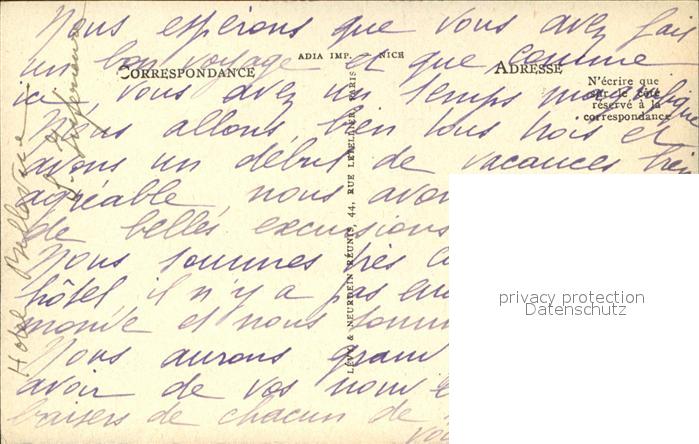 Nous espérons que vous avez fait
un bon voyage et que comme
ici vous avez un temps magnifique
Nous allons bien tous trois et
avons un début de vacances bien
agréable, nous avon
de belles excursions
Nous sommes très
hôtel il n'y a pas
monde et nous somm
Nous aurons gran
avoir de vos nouve
baisers de chacun de
Hotel Bellevue
ADIA IMP. NICE
CORRESPONDANCE
ADRESSE
N'écrire que
sur le côté
réservé à la
correspondance
LÉVY & NEURDEIN RÉUNIS, 44, RUE LETELLIER, PARIS
privacy protection
Datenschutz